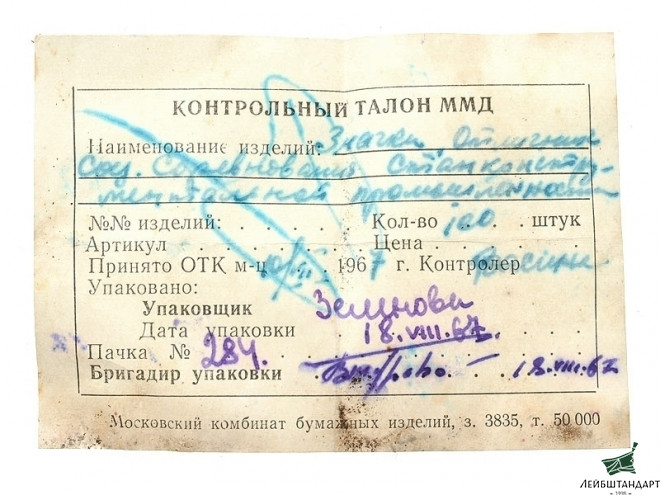 КОНТРОЛЬНЫЙ ТАЛОН ММД
Наименование изделий: Значки "Отличник
соц. соревнования станкоинстру-
ментальной промышленности
№№ изделий: . . . . . Кол-во 100 штук
Артикул . . . . . . Цена . . . . . .
Принято ОТК м-ц 1967 г. Контролер
Упаковано:
Упаковщик
Дата упаковки 18.VIII.67
Пачка № 284.
Бригадир упаковки 18.VIII.67
Московский комбинат бумажных изделий, з. 3835, т. 50 000
ЛЕЙБШТАНДАРТ
1998